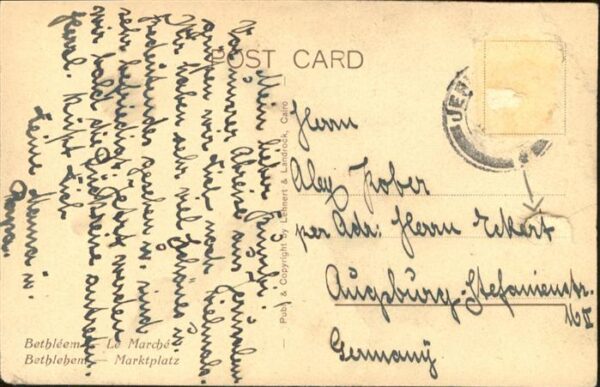 POST CARD
JER
Herrn
Alex Kober
per Adr: Herrn Eckert
Augsburg-Stefanienstr.
16 II
Germany
Mein lieber
Vor unserer Abreise aus Jerusalem
grüßen wir Dich noch vielmals.
Wir haben sehr viel Schönes u.
Bedeutendes gesehen u. sind
sehr befriedigt. Jetzt werden
wir bald die Rückreise antreten.
Herzl. küßt Dich
Deine Mama u.
Papa.
Publ. & Copyright by Lehnert & Landrock, Cairo
Bethléem — Le Marché
Bethlehem — Marktplatz